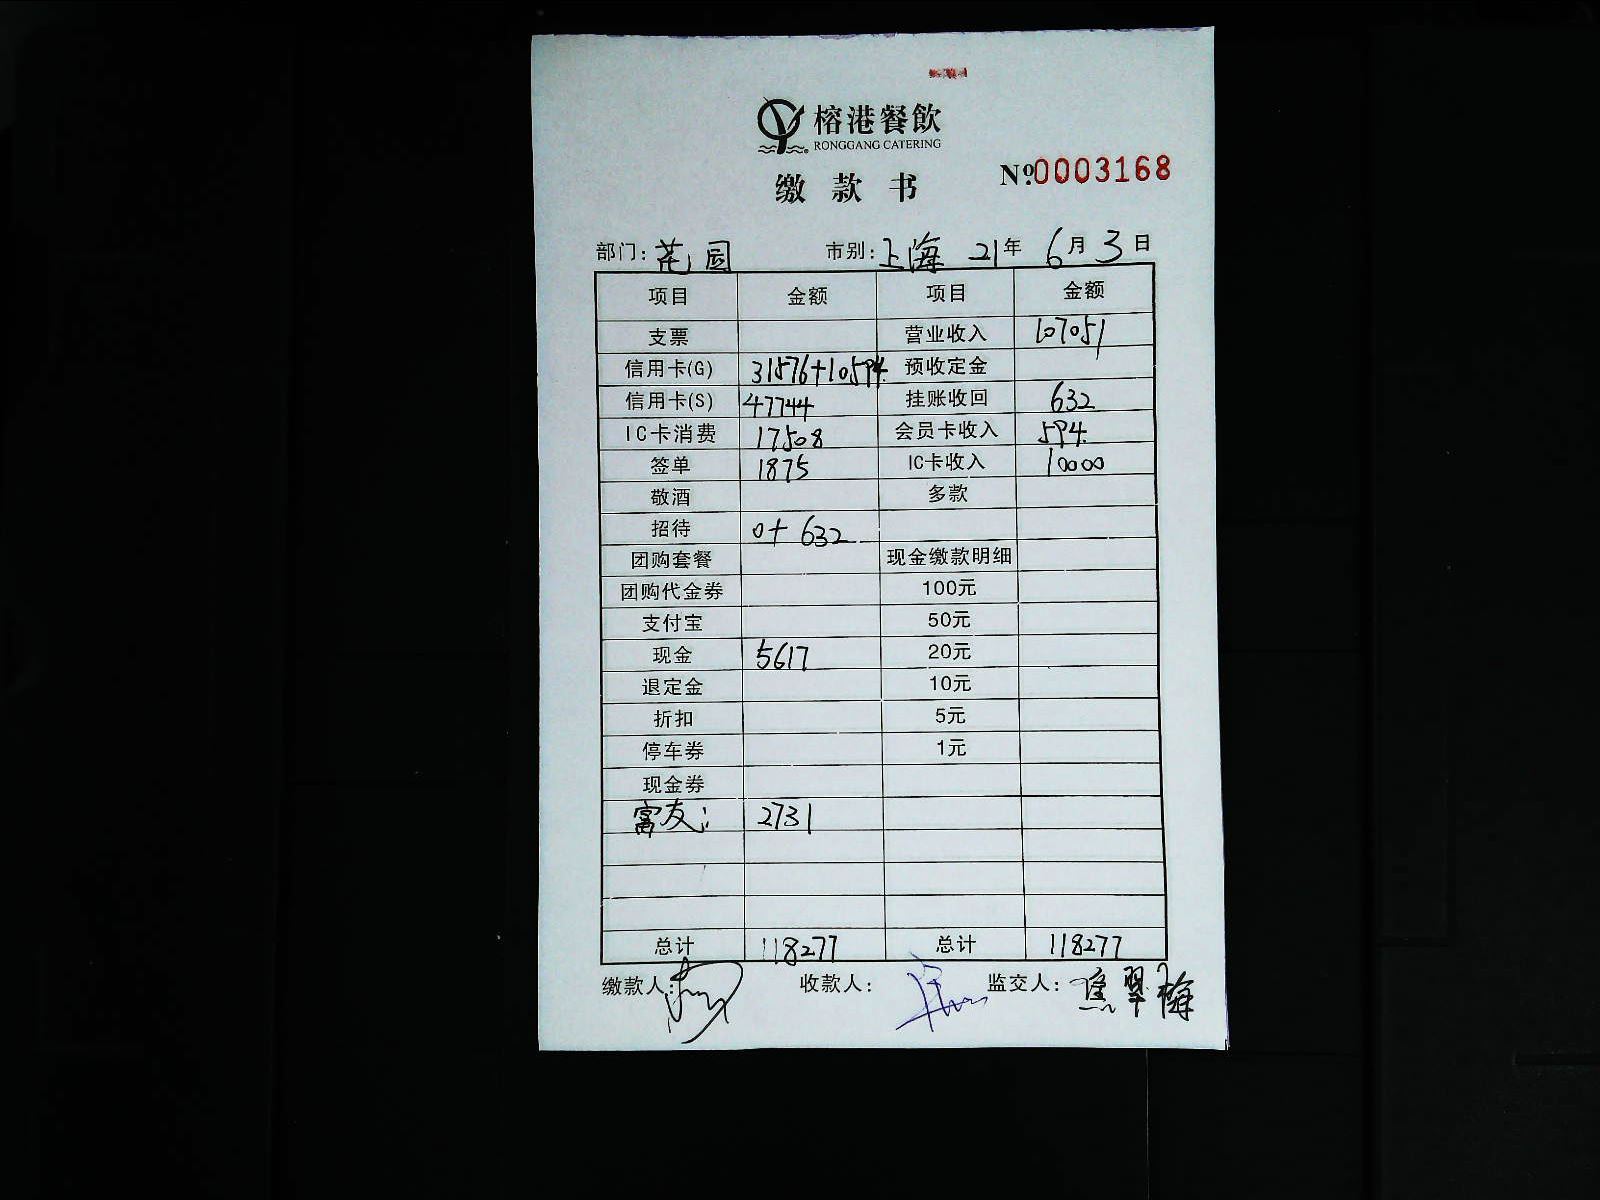 榕港餐飲
RONGGANG CATERING
缴款书 Nº.0003168
部门: 花园 市别: 上海 21年 6月 3日
项目 金额 项目 金额
支票 营业收入 107051
信用卡(G) 31576+10594 预收定金
信用卡(S) 47744 挂账收回 632
IC卡消费 17508 会员卡收入 594
签单 1875 IC卡收入 10000
敬酒 多款
招待 0+632
团购套餐 现金缴款明细
团购代金券 100元
支付宝 50元
现金 5617 20元
退定金 10元
折扣 5元
停车券 1元
现金券
富友: 2731
总计 118277 总计 118277
缴款人: 收款人: 监交人: 焦翠梅